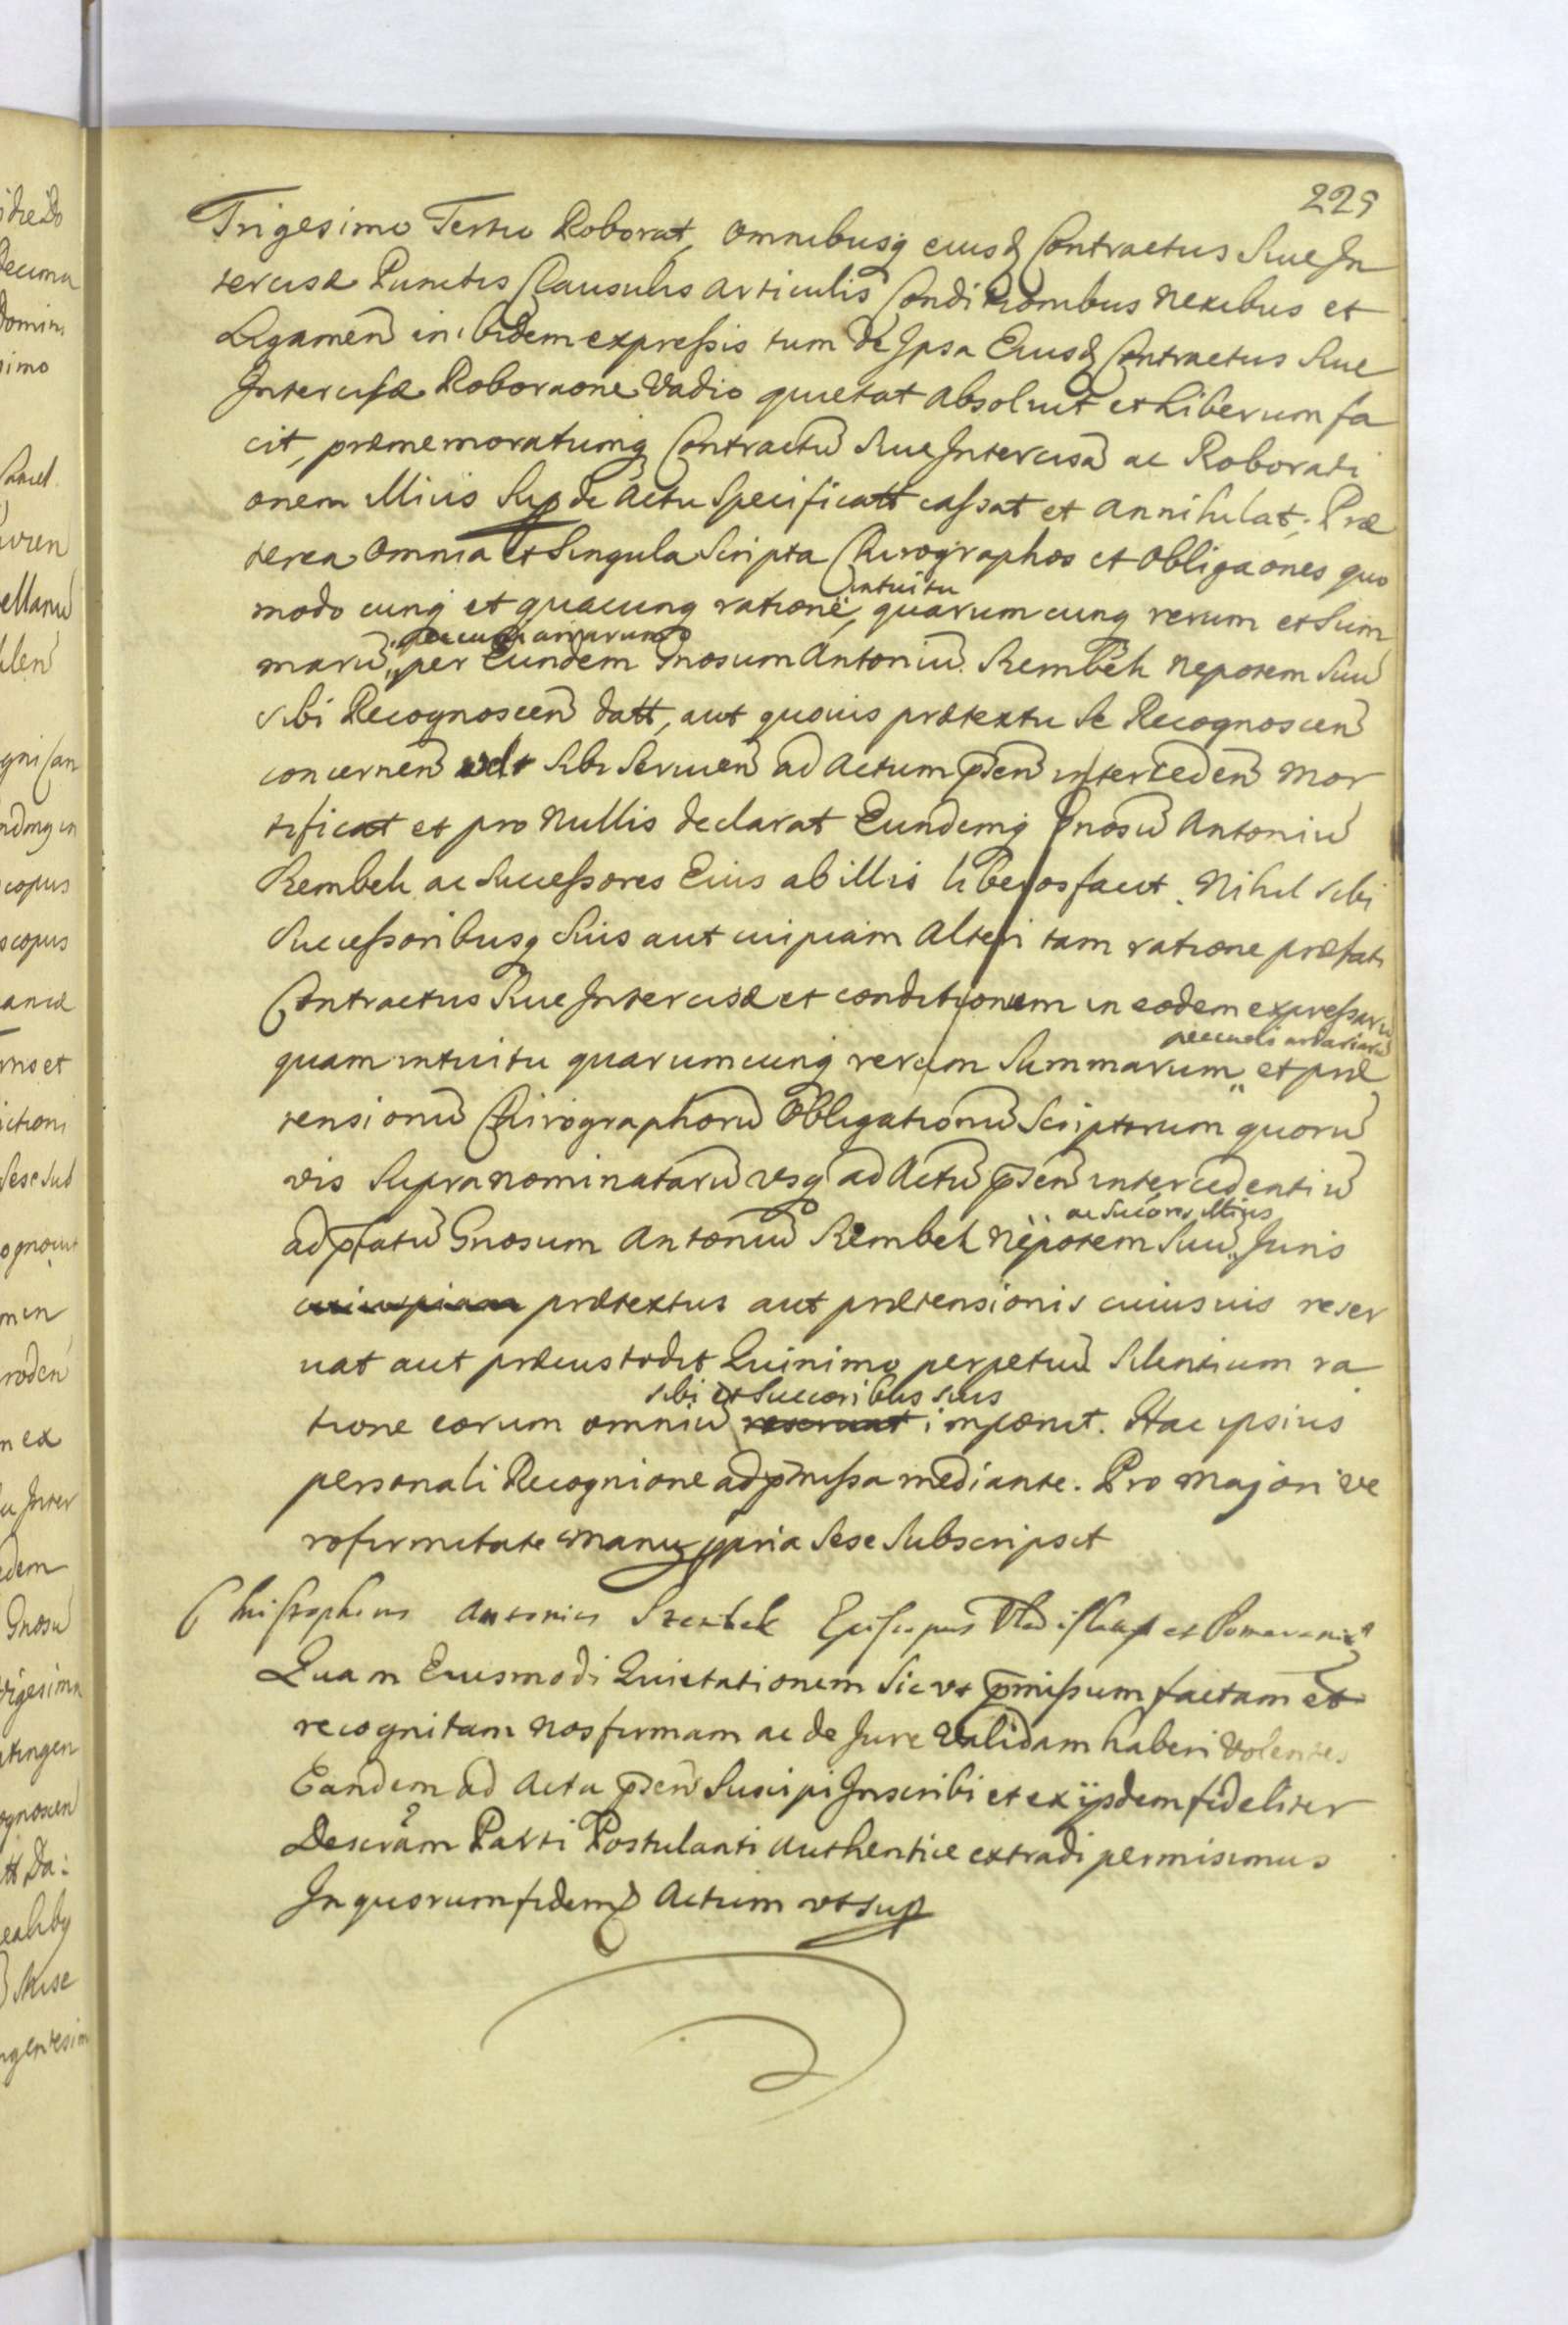 229
Trigesimo Tertio Roborat, omnibusq eiusd Contractus Siue In
tercisæ Punctis Clausulis Articulis Conditionibus Nexibus et
Ligamen inibidem expressis tum de Ipsa Eiusd Contractus Siue
Intercisæ Roboraone Vadio quietat absoluit et Liberum fa
cit, præmemoratumq Contractū Siue Intercisā ac Roborati
onem illius Sup de Actu Specificatt cassat et annihilat; Præ
terea omnia et Singula Scripta Chirographos et obligaones quo
modo cunq et quacunq ratione, intuitu quarumcunq rerum et Sum
marū pecuniariarum per Eundem Gnosum Antoniū Szembek Nepotem Suū
sibi Recognoscen datt, aut quouis prætextu Se Recognoscen
concernen vel Sibi Seruien ad Actum pſen interceden Mor
tificat et pro Nullis declarat Eundemq Gnosū Antoniū
Szembek ac Successores Eius ab illis liberos facit. Nihil sibi
Successoribusq Suis aut cuipiam Alteri tam ratione præfati
Contractus Siue Intercisæ et conditionem in eodem expressarū
quam intuitu quarumcunq rerum Summarum et præ
tensionū Chirographorū Obligationū Scriptorum quorū
vis Supranominatarū vsq ad Actū pſen intercedentiū
ac Succōres Illius
ad pfatū Gnosum Antoniū Szembek Nepotem Suū Juris
prætextus aut prætensionis cuiusuis reser
uat aut præcustodit Quinimo perpetuū Silentium ra
sibi et Succoribus suis
tione eorum omniū reseruat imponit. Hac ipsius
personali Recognione ad pmissa mediante. Pro Majori ve
ro firmitate manu ppria Sese Subscripsit
Christophorus Antonius Szembek Episcopus Vladislauſ et Pomeraniæ
Quam Eiusmodi Quietationem Sic vt pmissum factam et
recognitam nos firmam ac de Jure Validam haberi Volentes
Eandem ad Acta pſen Suscipi Inscribi et ex ijsdem fideliter
Descrām Parti Postulanti Authentice extradi permisimus
In quorum fidem Actum vt sup